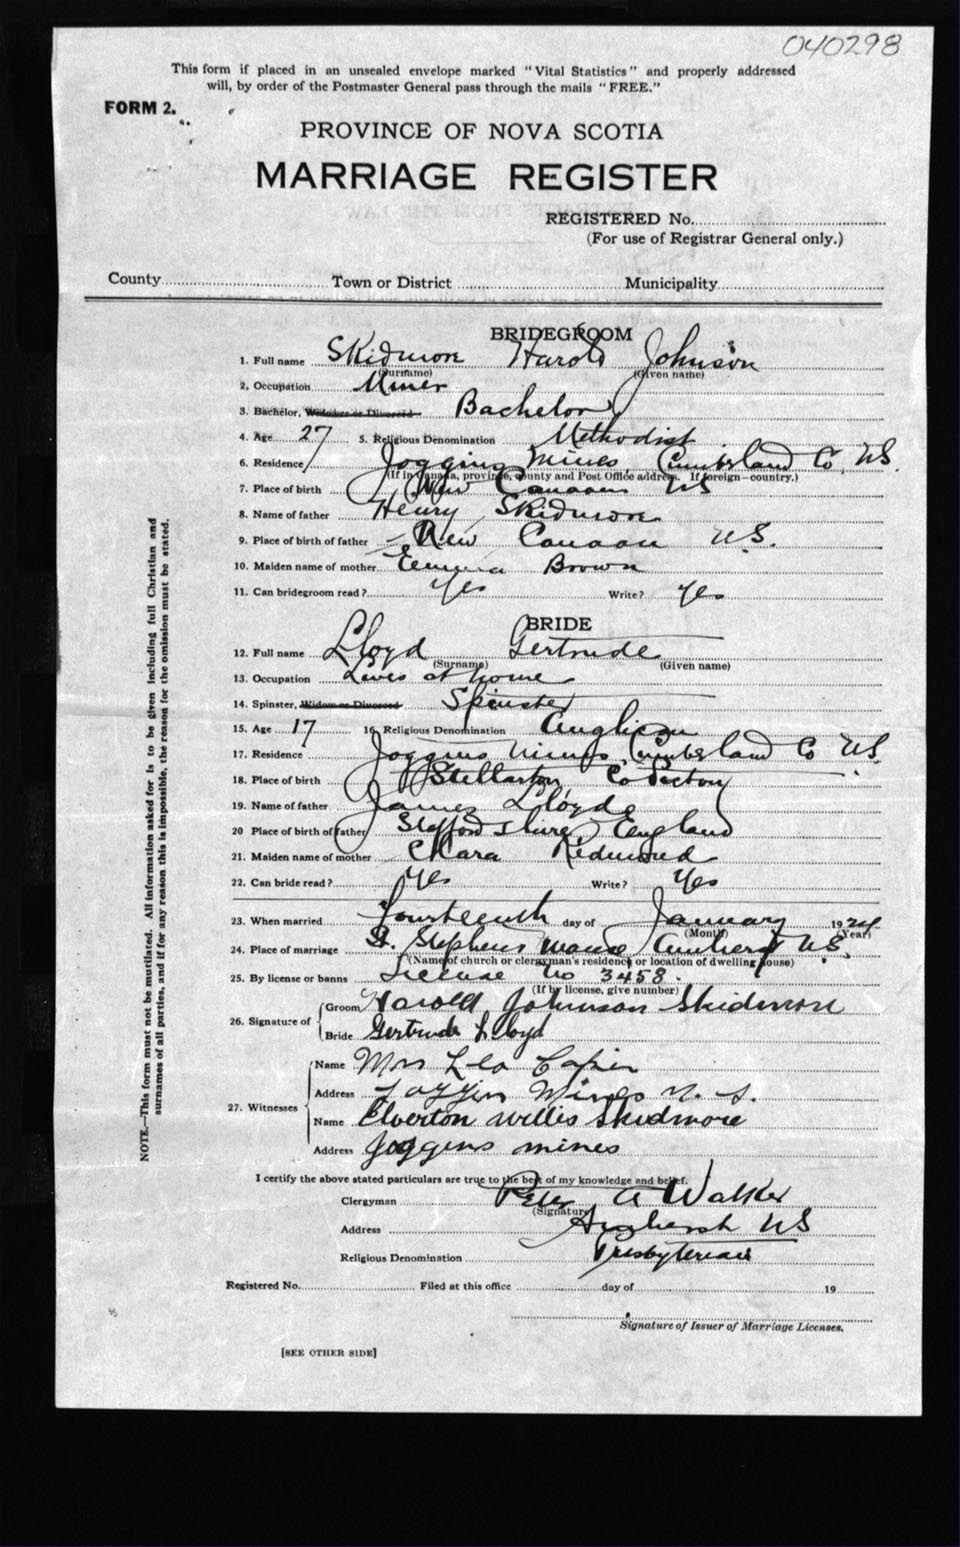 040298
This form if placed in an unsealed envelope marked "Vital Statistics" and properly addressed
will, by order of the Postmaster General pass through the mails "FREE."
FORM 2.
PROVINCE OF NOVA SCOTIA
MARRIAGE REGISTER
REGISTERED No.
(For use of Registrar General only.)
County Town or District Municipality
BRIDEGROOM
1. Full name Skidmore Harold Johnson
(Surname) (Given name)
2. Occupation Miner
3. Bachelor, Widower or Divorced Bachelor
4. Age 27 5. Religious Denomination Methodist
6. Residence Joggins Mines Cumberland Co. NS.
(If in Canada, province, county and Post Office address. If foreign—country.)
7. Place of birth New Canaan NS
8. Name of father Henry Skidmore
9. Place of birth of father New Canaan N.S.
10. Maiden name of mother Emma Brown
11. Can bridegroom read? Yes Write? Yes
BRIDE
12. Full name Lloyd Gertrude
(Surname) (Given name)
13. Occupation Lives at home
14. Spinster, Widow or Divorced Spinster
15. Age 17 16. Religious Denomination Anglican
17. Residence Joggins Mines Cumberland Co NS.
18. Place of birth Stellarton Co Pictou
19. Name of father James Lloyd
20 Place of birth of father Staffordshire, England
21. Maiden name of mother Clara Redmond
22. Can bride read? Yes Write? Yes
23. When married fourteenth day of January 1924
(Month) (Year)
24. Place of marriage St. Stephens manse Amherst N.S.
(Name of church or clergyman's residence or location of dwelling house)
25. By license or banns License No 3458.
(If by license, give number)
26. Signature of
Groom Harold Johnson Skidmore
Bride Gertrude Lloyd
27. Witnesses
Name Mrs Leo
Address Joggin Mines N. S.
Name Elverton Willis Skidmore
Address Joggins mines
I certify the above stated particulars are true to the best of my knowledge and belief.
Clergyman Peter A Walker
(Signature)
Address Amherst NS
Religious Denomination Presbyterian
Registered No. Filed at this office day of 19
Signature of Issuer of Marriage Licenses.
[SEE OTHER SIDE]
NOTE.—This form must not be mutilated. All information asked for is to be given including full Christian and
surnames of all parties, and if for any reason this is impossible, the reason for the omission must be stated.